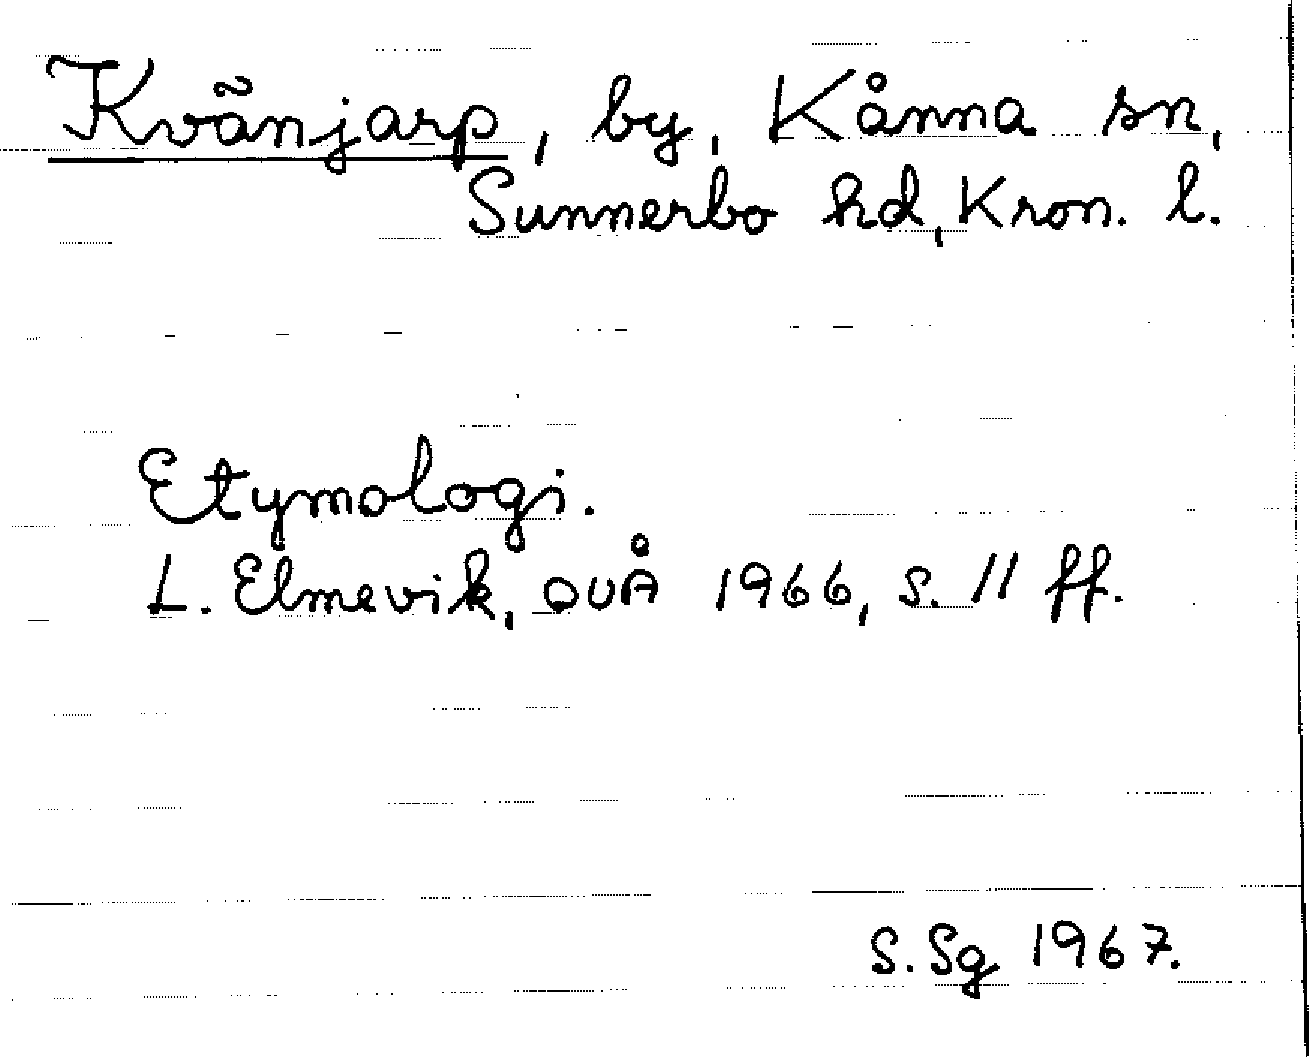 Kvänjarp, by, Kånna sn,
Sunnerbo hd, Kron. l.
Etymologi.
L. Elmevik, OUÅ 1966, s. 11 ff.
S. Sg 1967.